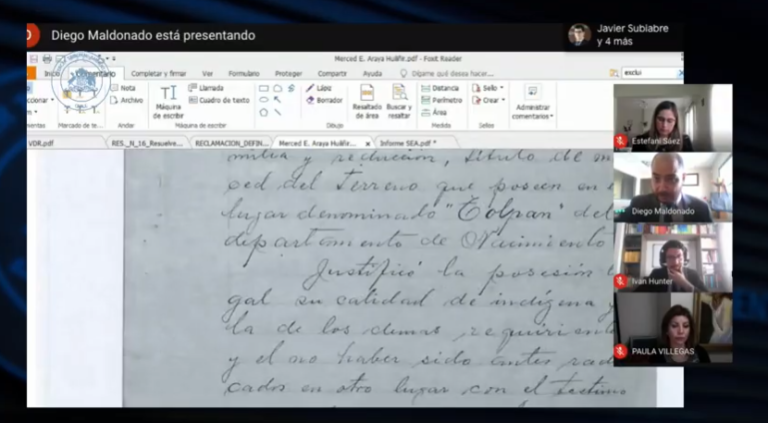 Diego Maldonado está presentando
Javier Subiabre
y 4 más
Merced E. Araya Huilifir.pdf - Foxit Reader
Completar y firmar Ver Formulario Proteger Compartir Ayuda Dígame qué desea hacer...
exclui
Nota
Archivo
Anclar
Máquina
de escribir
Llamada
Cuadro de texto
Máquina de escribir
Lápiz
Borrador
Dibujo
Resaltado
de área
Buscar y
resaltar
Distancia
Perímetro
Área
Medida
Sello
Crear
Sellos
Administrar
comentarios
VDR.pdf
RES._N_16_Resuelve...
RECLAMACION_DEFIN...
Merced E. Araya Huilifir.... x
Informe SEA.pdf *
milia y reducción, título de m
ced del Terreno que poseen en e
lugar denominado "Tolpan" del
departamento de Nacimiento
Justificó la posesión l
gal su calidad de indígena y
la de los demas requirient
y el no haber sido antes radi
cados en otro lugar con el testimo
Estefani Sáez
Diego Maldonado
Ivan Hunter
PAULA VILLEGAS